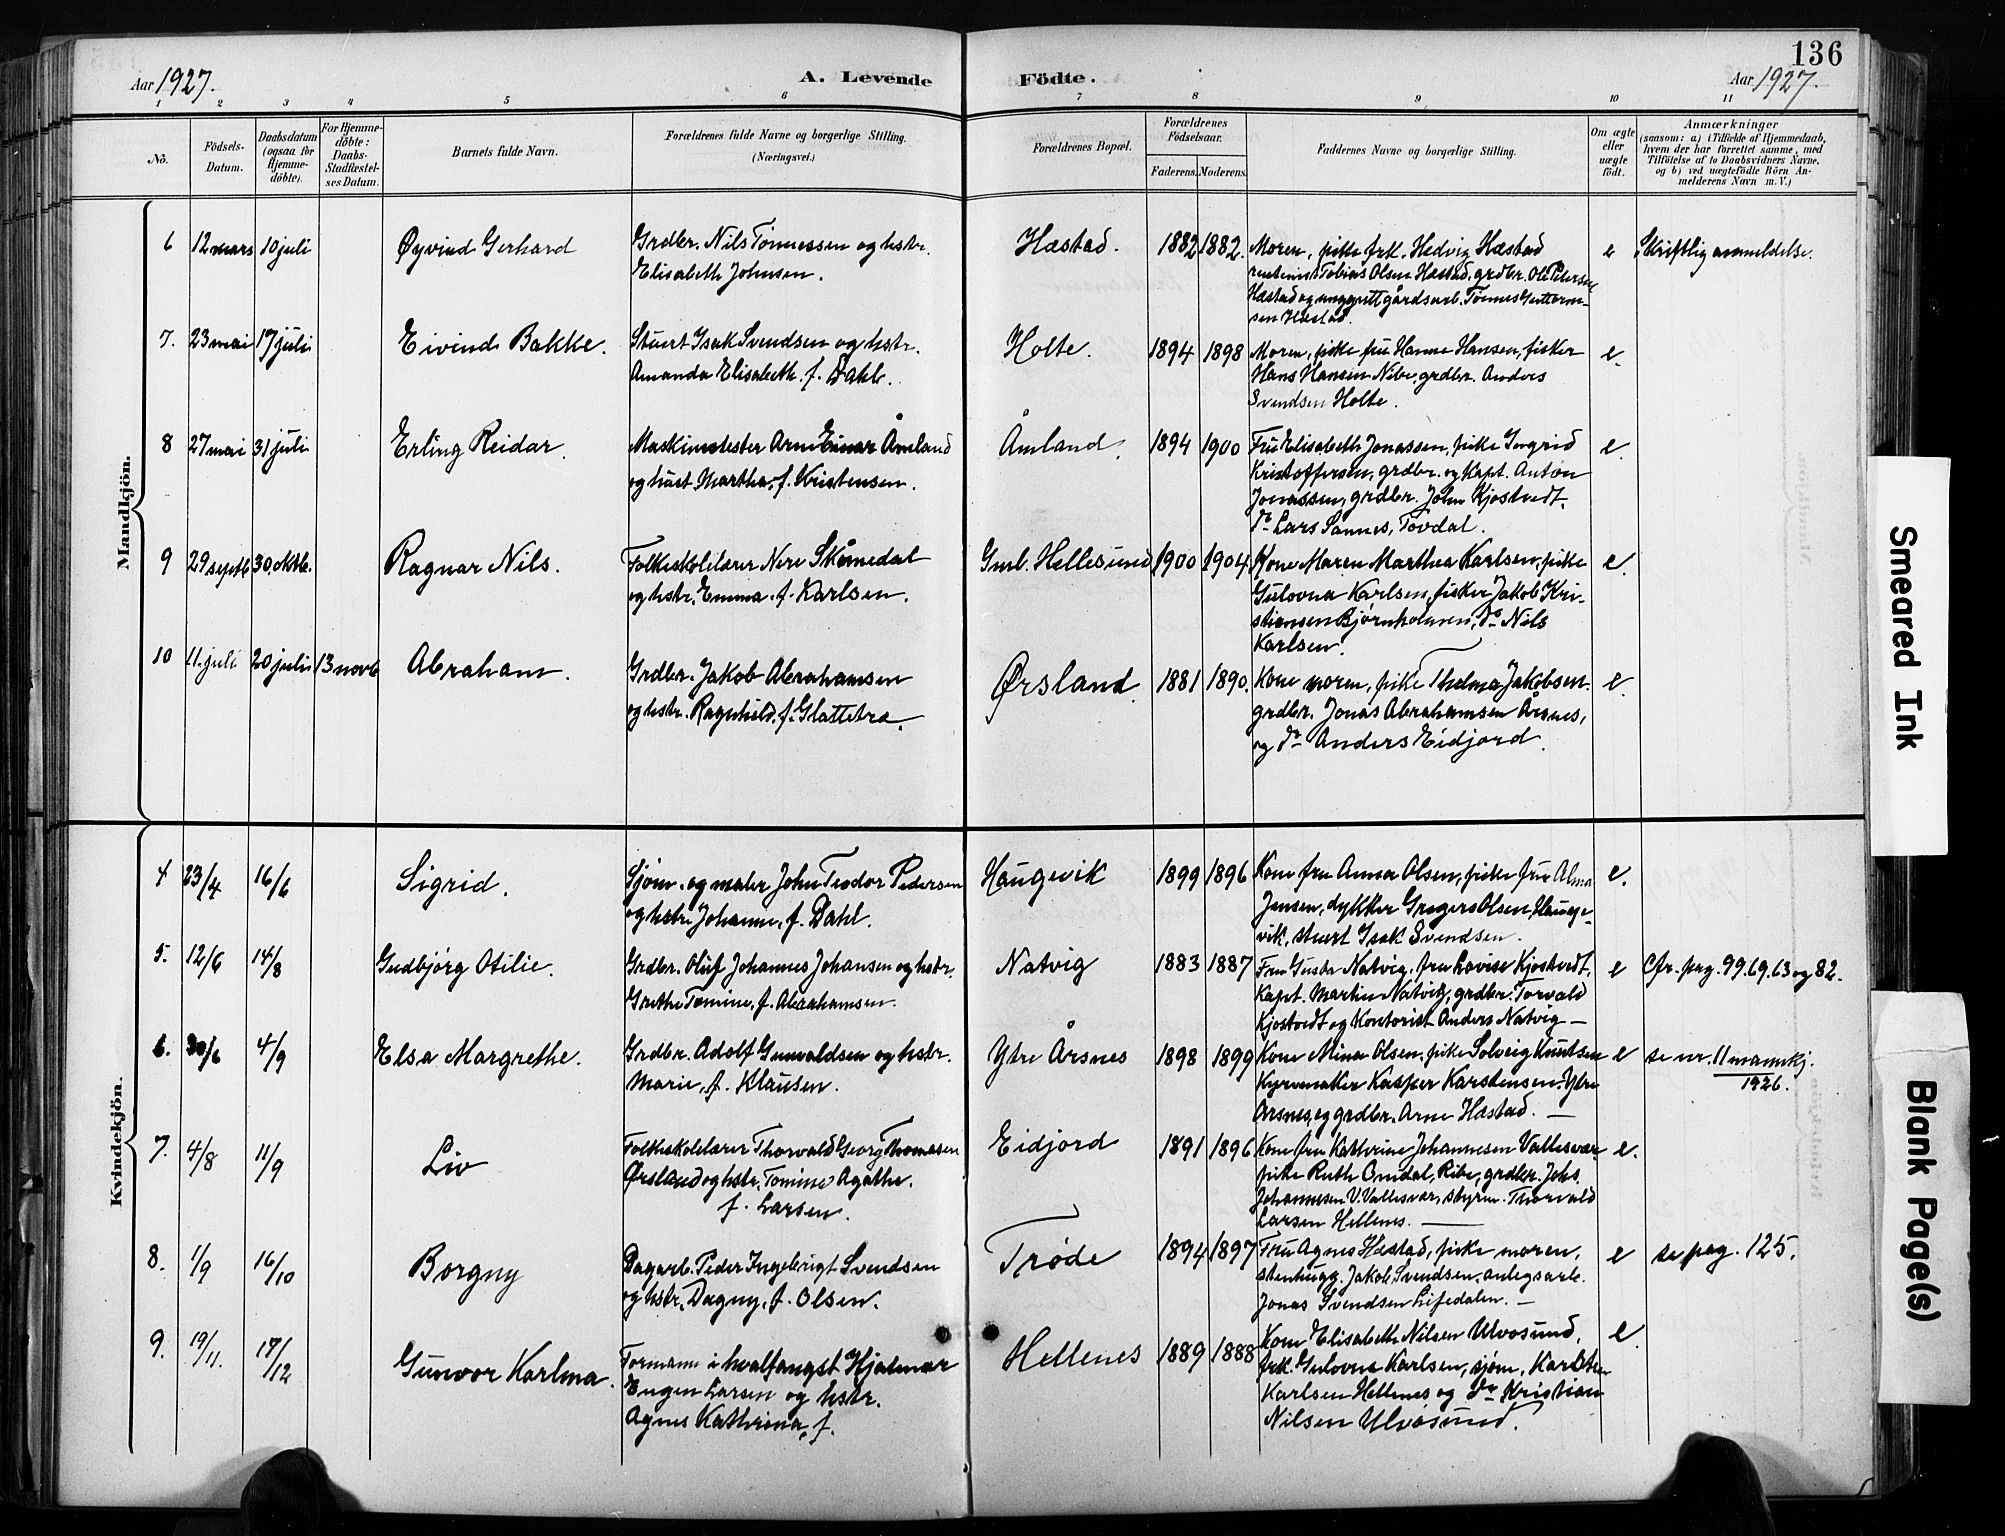 136
Aar 1927.
A. Levende Födte.
Aar 1927.
1 2 3 4 5 6 7 8 9 10 11
No.
Födsels-
Datum.
Daabsdatum
(ogsaa for
Hjemme-
döbte).
For Hjemme-
döbte:
Daabs-
Stadfæstel-
ses Datum.
Barnets fulde Navn.
Forældrenes fulde Navne og borgerlige Stilling.
(Næringsvei.)
Forældrenes Bopæl.
Forældrenes
Födselsaar.
Faderens. Moderens.
Faddernes Navne og borgerlige Stilling.
Om ægte
eller
uægte
födt.
Anmærkninger
(saasom: a) i Tilfælde af Hjemmedaab,
hvem der har forrettet samme, med
Tilföielse af to Daabsvidners Navne,
og b) ved uægtefödte Börn An-
melderens Navn m. V.)
Mandkjön.
6 12 mars 10 juli Øyvind Gerhard
Grdbr. Nils Tønnessen og hstr.
Elisabeth Johnsen.
Hæstad. 1882 1882.
Moren, pike frk. Hedvig Hæstad
Tobias Olsen Hæstad, grdbr. Ole Petersen
Hæstad og unggutt gårdsarb. Tønnes Guttorm-
sen Hæstad.
e Skriftlig anmeldelse.
7. 23 mai 17 juli Eivind Bakke.
Stuert Isak Svendsen og hstr.
Amanda Elisabeth f. Dahl.
Holte. 1894 1898
Moren, pike fru Hanne Hansen, fisker
Hans Hansen Nibe, grdbr. Anders
Svendsen Holte.
e.
8 27 mai 31 juli Erling Reidar.
Maskinmester Arne Einar Åmland
og hust. Martha, f. Kristensen.
Åmland. 1894 1900
Fru Elisabeth Jonassen, pike Ingrid
Kristoffersen, grdbr. og Kapt. Anton
Jonassen, grdbr. John Kjostvedt,
do Lars Sannes, Tovdal.
e.
9 29 septb 30. oktb. Ragnar Nils.
Folkeskolelærer Nere Skåmedal
og hstr. Emma f. Karlsen.
Gml. Hellesund 1900 1904.
Kone Maren Marthea Karlsen, pike
Gulovna Karlsen, fisker Jakob Kri-
stiansen Bjørnholmen, do Nils
Karlsen.
e.
10 11. juli 20 juli 13 novb Abraham.
Grdbr. Jakob Abrahamsen
og hstr. Ragnhild, f. Glattetra.
Ørsland. 1881 1890.
Kone moren, pike Thelma Jakobsen.
grdbr. Jonas Abrahamsen Årsnes,
og do Anders Eidjord.
e.
Kvindekjön.
4 23/4 16/6 Sigrid.
Sjøm. og maler John Teodor Pedersen
og hstr. Johanne, f. Dahl.
Haugevik 1899 1896
Kone fru Anna Olsen, pike fru Alma
Jensen, dykker Gregers Olsen, Hauge-
vik, stuert Isak Svendsen.
e.
5. 12/6 14/8 Gudbjørg Otilie.
Grdbr. Oluf Johannes Johansen og hstr.
Grethe Tomine, f. Abrahamsen.
Natvig 1883 1887
Fru Gusta Natvig, fru Lovise Kjostvedt,
Kapt. Martin Natvig, grdbr. Torvald
Kjostvedt og Kontorist Anders Natvig —
e Cfr. pag. 99. 69. 63 og 82.
6. 30/6 4/9 Elsa Margrethe.
Grdbr. Adolf Gunvaldsen og hstr.
Marie, f. Klausen.
Ytre Årsnes 1898 1899
Kone Mina Olsen, pike Solveig Knutsen
Kurvemaker Kasper Karstensen, Ytre
Årsnes, og grdbr. Arne Hæstad. —
e se nr. 11 mannkj.
1926.
7. 4/8 11/9 Liv
Folkeskolelærer Thorvald Georg Thomesen
Ørsland og hstr. Tomine Agathe.
f. Larsen.
Eidjord 1891 1896
Kone fru Kathrine Johannesen Vallesvær
pike Ruth Omdal, Ribe, grdbr. Johs.
Johannesen V. Vallesvær, styrm. Thorvald
Larsen Hellenes. —
e.
8. 1/9 16/10 Borgny
Dagarb. Peder Ingebrigt Svendsen
og hstr. Dagny, f. Olsen.
Trøde 1894 1897
Fru Agnes Hæstad, pike moren,
stenhugg. Jakob Svendsen, anlegsarb.
Jonas Svendsen Lifjedalen. —
e se pag. 125.
9. 19/11. 17/12 Gunvor Karlma.
Formann i hvalfangst Hjalmar
Eugen Larsen og hstr.
Agnes Kathrina, f.
Hellenes 1889 1888
Kone Elisabeth Nilsen Ulvøsund,
frk. Gulovna Karlsen, sjøm. Karsten
Karlsen Hellenes og do Kristian
Nilsen Ulvøsund.
e.
Smeared Ink
Blank Page(s)